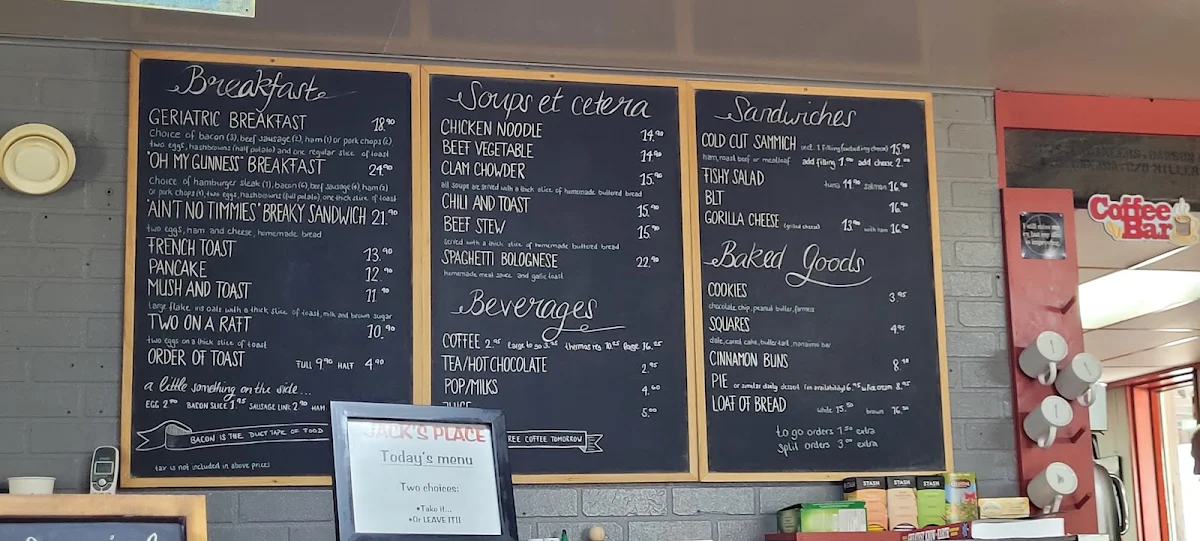 Breakfast
GERIATRIC BREAKFAST 18.90
choice of bacon (3), beef sausage (2), ham (1) or pork chops (2)
two eggs, hashbrowns (half potato) and one regular slice of toast
"OH MY GUNNESS" BREAKFAST 24.90
choice of hamburger steak (1), bacon (6), beef sausage (4), ham (2)
or pork chops (1), two eggs, hashbrowns (full potato), one thick slice of toast
"AIN'T NO TIMMIES" BREAKY SANDWICH 21.90
two eggs, ham and cheese, homemade bread
FRENCH TOAST 13.90
PANCAKE 12.90
MUSH AND TOAST 11.90
large flake oats with a thick slice of toast, milk and brown sugar
TWO ON A RAFT 10.90
two eggs on a thick slice of toast
ORDER OF TOAST FULL 9.90 HALF 4.90
a little something on the side...
EGG 2.90 BACON SLICE 1.95 SAUSAGE LINK 2.90 HAM
BACON IS THE DUCT TAPE OF FOOD
tax is not included in above prices
Soups et cetera
CHICKEN NOODLE 14.90
BEEF VEGETABLE 14.90
CLAM CHOWDER 15.90
all soups are served with a thick slice of homemade buttered bread
CHILI AND TOAST 15.90
BEEF STEW 15.90
served with a thick slice of homemade buttered bread
SPAGHETTI BOLOGNESE 22.90
homemade meat sauce and garlic toast
Beverages
COFFEE 2.95 large to go 3.95 thermos reg 10.25 large 16.25
TEA/HOT CHOCOLATE 2.95
POP/MILKS 4.60
JUICE 5.00
FREE COFFEE TOMORROW
Sandwiches
COLD CUT SAMMICH incl. 1 filling (excluding cheese) 15.90
ham, roast beef or meatloaf add filling 1.00 add cheese 2.00
FISHY SALAD tuna 14.90 salmon 16.90
BLT 16.90
GORILLA CHEESE (grilled cheese) 13.90 with ham 16.90
Baked Goods
COOKIES 3.95
chocolate chip, peanut butter, farmers
SQUARES 4.95
date, carrot cake, butter tart, nanaimo bar
CINNAMON BUNS
PIE or similar daily dessert (on availability) 6.95 w/ice cream 8.95
LOAF OF BREAD white 15.50 brown 16.50
to go orders 1.50 extra
split orders 3.00 extra
JACK'S PLACE
Today's menu
Two choices:
•Take it...
•Or LEAVE IT!!
Coffee
Bar
STASH
STASH
STASH